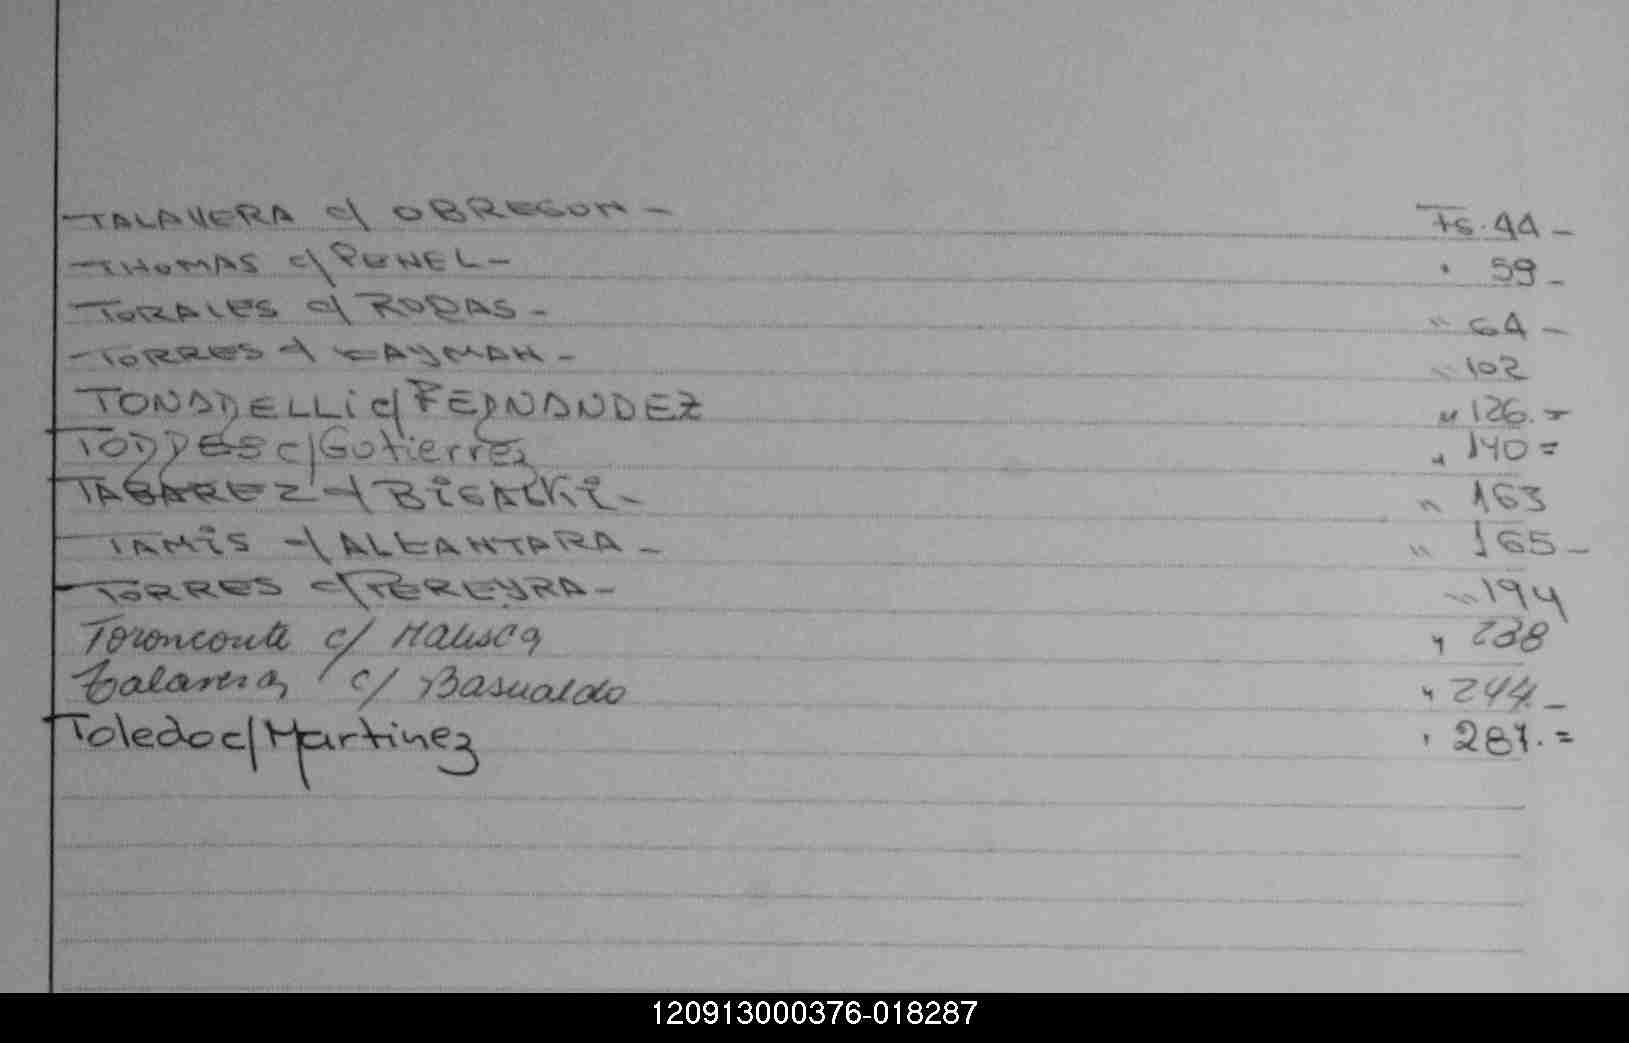 TALAVERA c/ OBREGON - Fs. 44 -
THOMAS c/ PUNEL - " 59 -
TORALES c/ RODAS - " 64 -
TORRES c/ CAYMAN - " 102
TONADELLI c/ FERNANDEZ " 126. =
TORRES c/ Gutierrez " 140 =
TABAREZ c/ BIGALKI - " 163
TAMIS c/ ALCANTARA - " 165 -
TORRES c/ PEREYRA - " 194
c/ " 238
Talavera c/ Basualdo " 244. -
Toledo c/ Martinez " 287. =
120913000376-018287